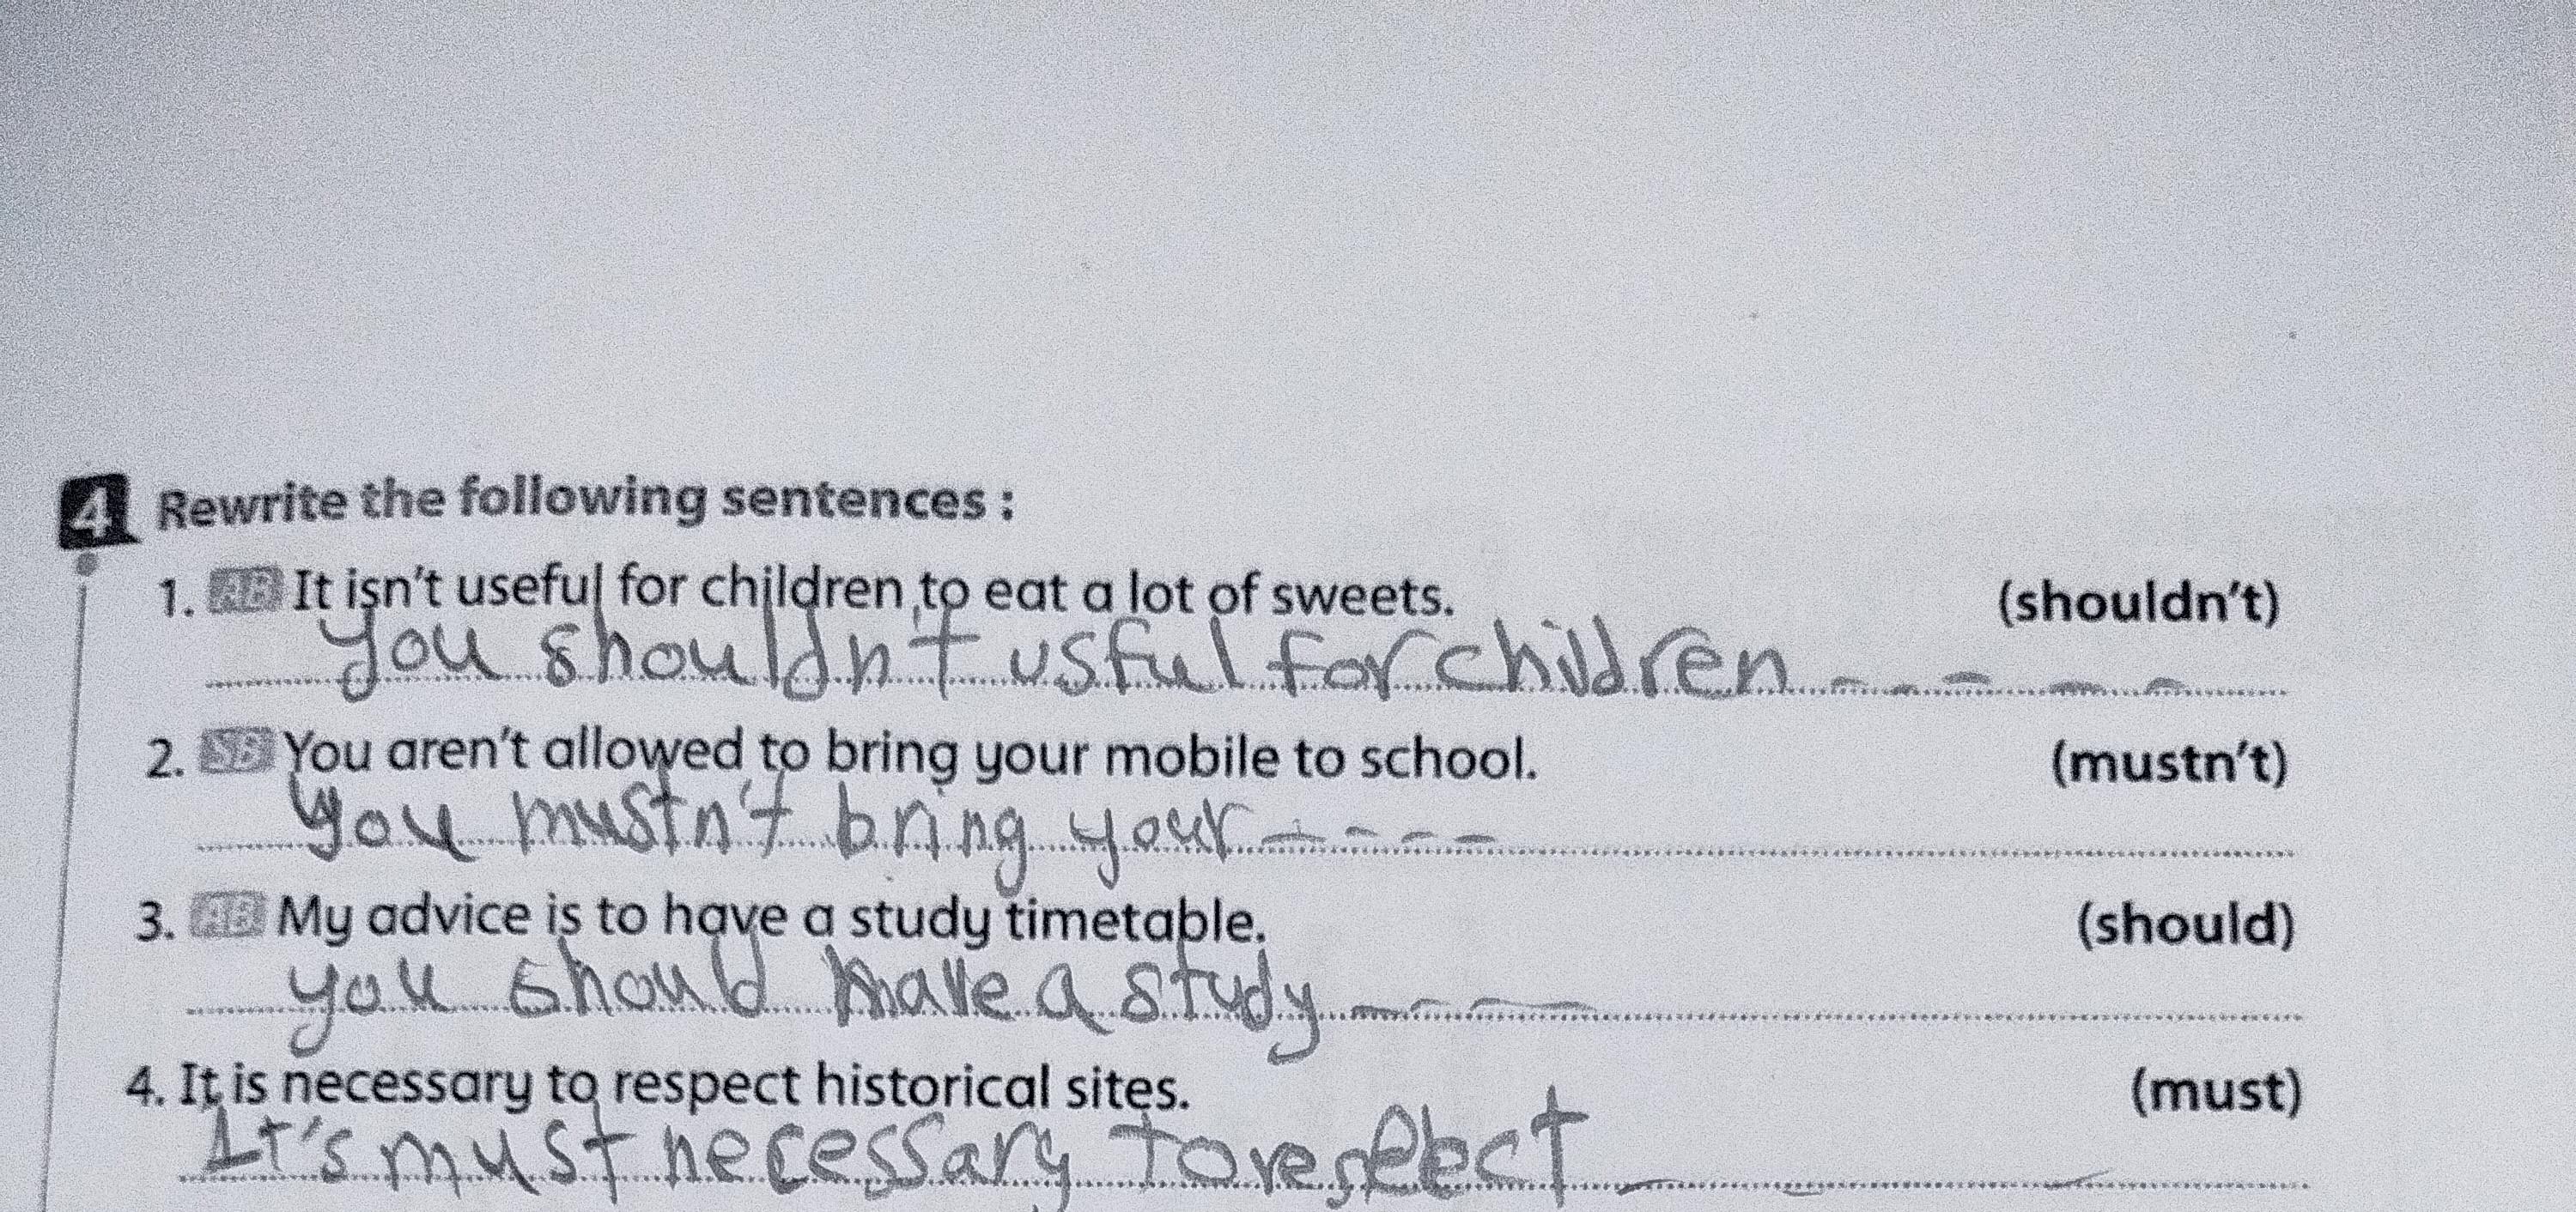 4 Rewrite the following sentences :
1. AB It isn't useful for children to eat a lot of sweets. (shouldn't)
you shouldn't usful for children - - - - -
2. SB You aren't allowed to bring your mobile to school. (mustn't)
you mustn't bring your - - - -
3. AB My advice is to have a study timetable. (should)
you should have a study - - -
4. It is necessary to respect historical sites. (must)
It's must necessary to - - -